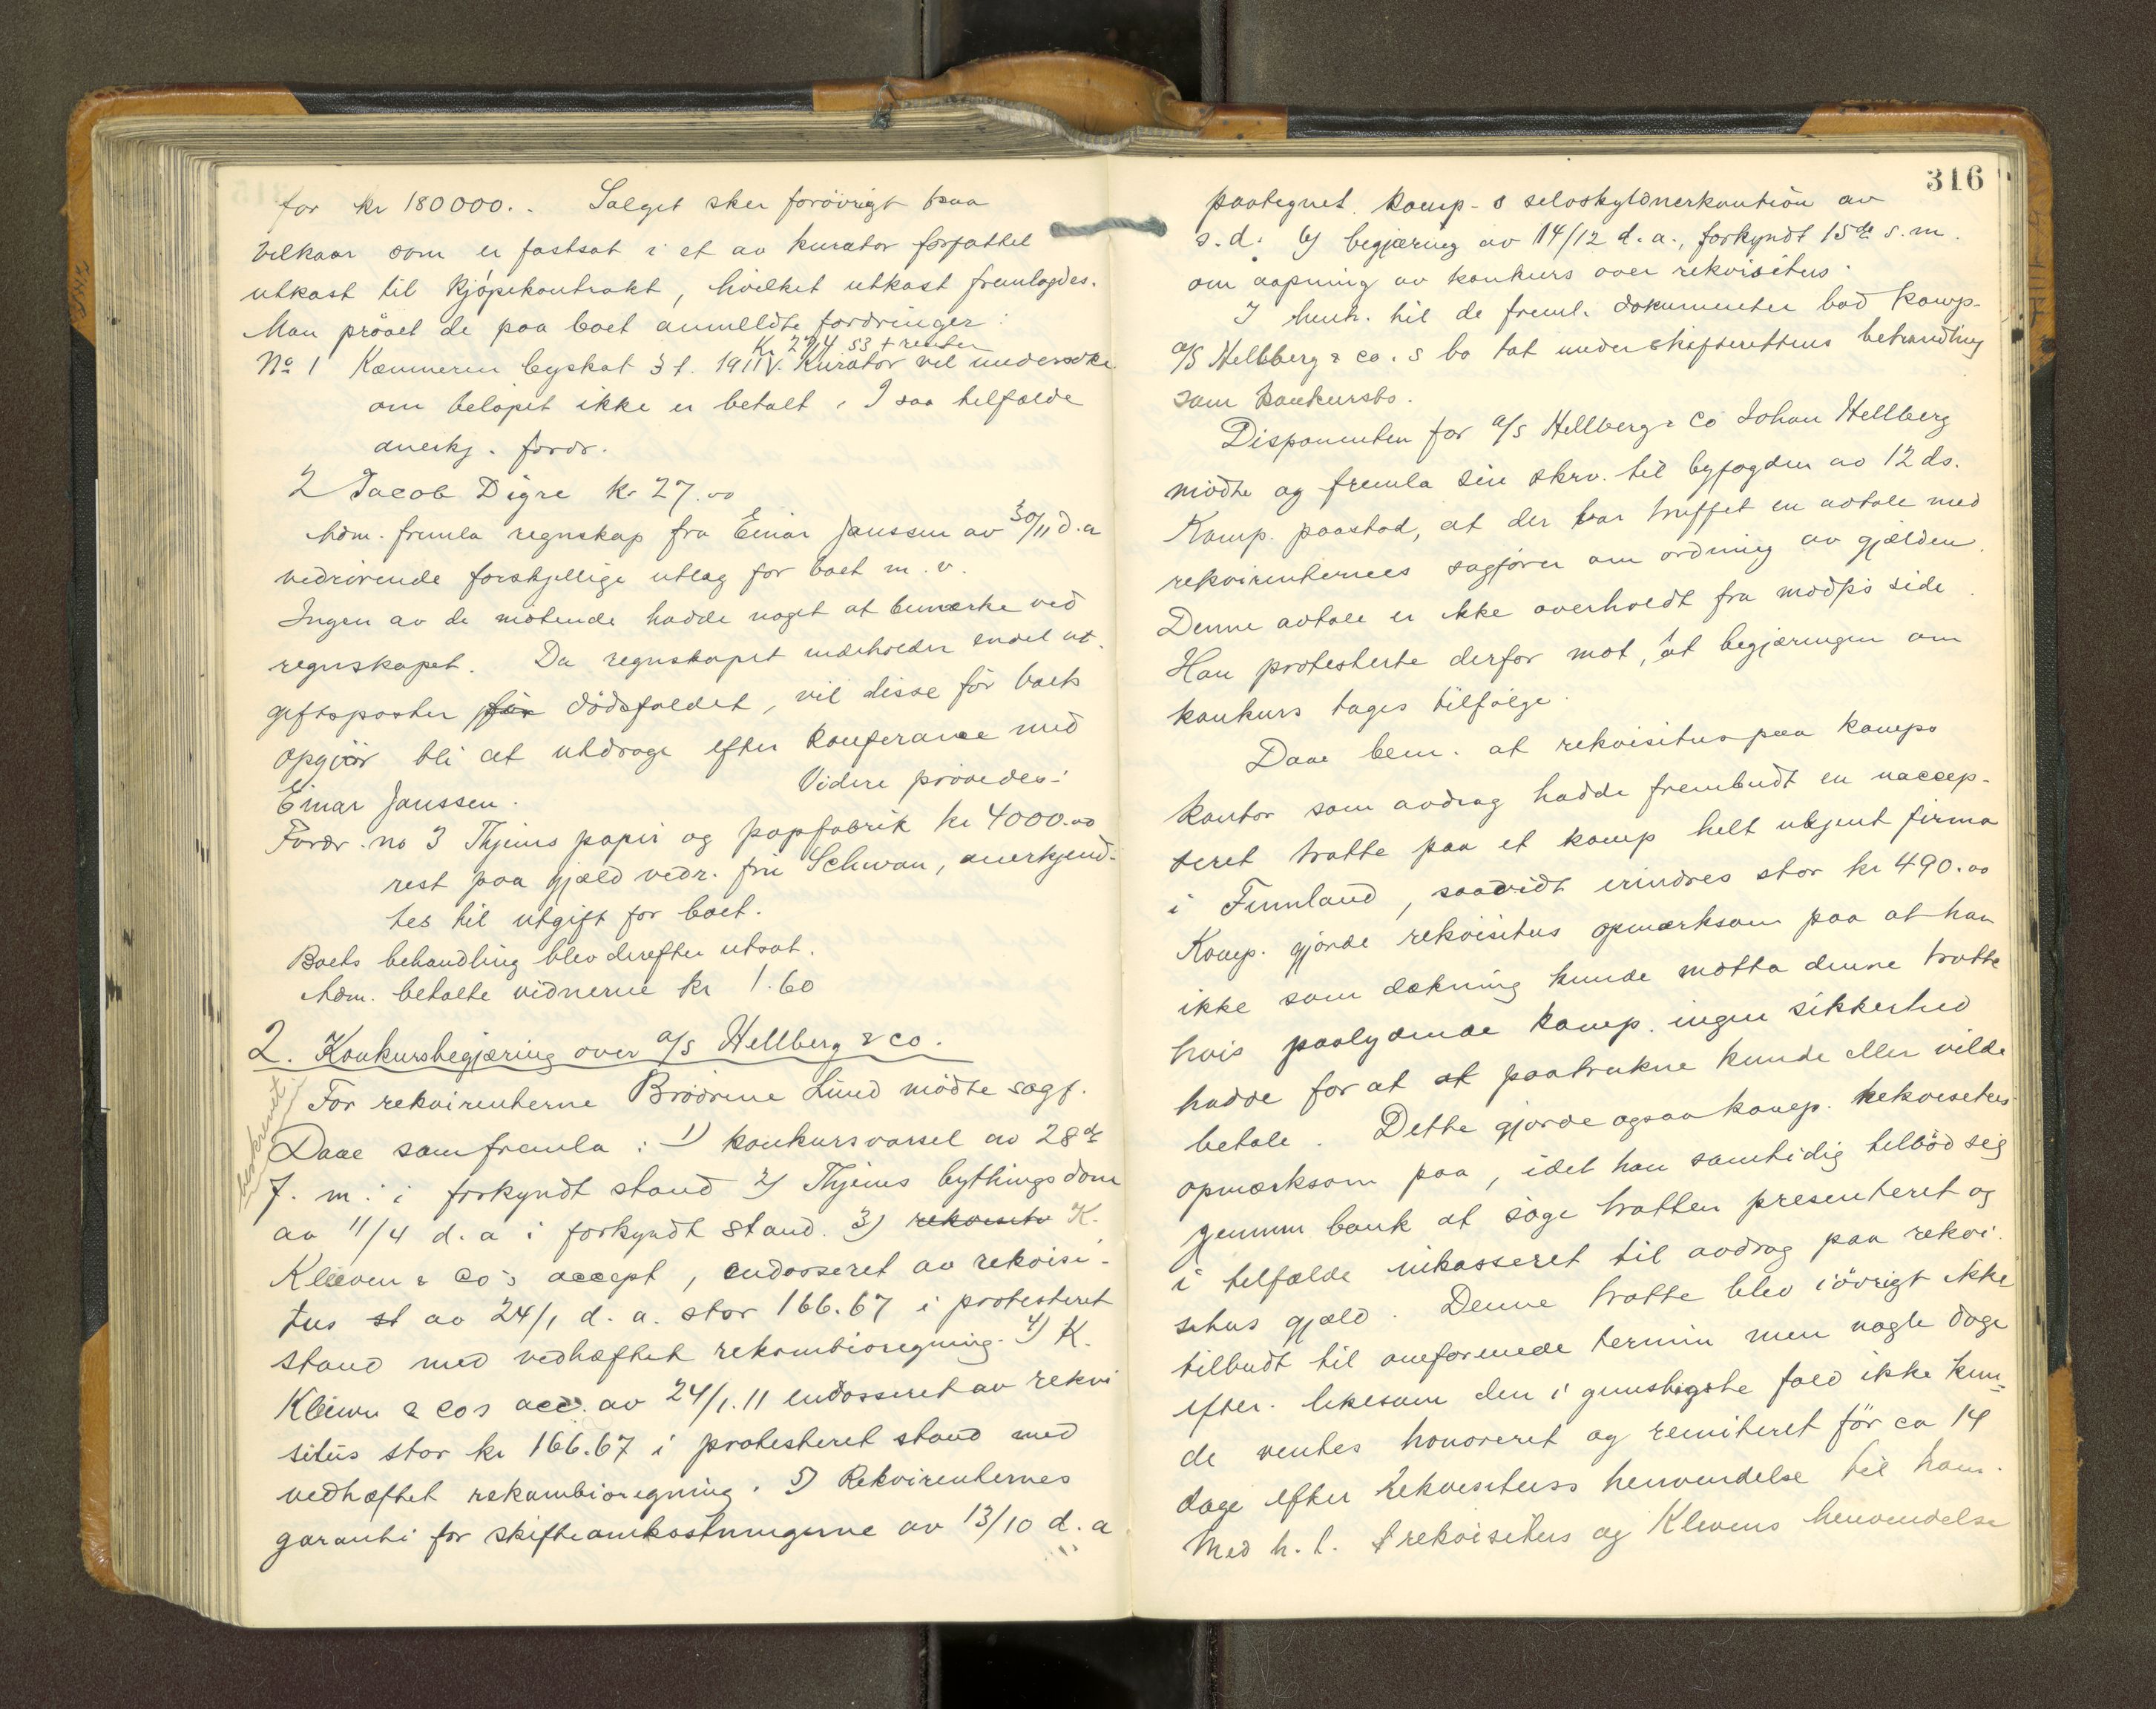 for kr 180000.. Salget sker forövrigt paa
vilkaar som er fastsat i et av kurator forfattet
utkast til kjöpekontrakt, hvilket utkast fremlagdes.
Man prövet de paa boet anmeldte fordringer:
Kr 2714 53 + renter
No 1 Kæmneren byskat 3 t. 1911. Kurator vil undersöke
om belöpet ikke er betalt. I saa tilfælde
anerkj. fordr.
2 Jacob Digre kr 27.00
Adm. fremla regnskap fra Einar Janssen av 30/11 d. a
vedrörende forskjellige utlæg for boet m. v.
Ingen av de mötende hadde noget at bemærke ved
regnskapet. Da regnskapet indeholder endel ut-
giftsposter för dödsfaldet, vil disse för boets
opgjör bli at utdrage efter konferance med
Einar Janssen. Videre prövedes:
Fordr. no 3 Thjems papir og papfabrik kr 4000.00
rest paa gjæld vedr. fru Schwan, anerkjend-
tes til utgift for boet.
Boets behandling blev derefter utsat.
Adm. betalte vidnerne kr 1.60
2. Konkursbegjæring over a/s Hellberg & co.
beskrevet
For rekvirenterne Brödrene Lund mödte sagf.
Daae som fremla: 1) konkursvarsel av 28de
f. m. i forkyndt stand 2) Thjems bythingsdom
av 11/4 d. a i forkyndt stand. 3) rekvisitu K.
Kleven & co's accept, endosseret av rekvisi-
tus st av 24/1 d. a. stor 166.67 i protesteret
stand med vedhæftet rekambioregning. 4) K.
Kleven & cos acc. av 24/1. 11 endosseret av rekvi
situs stor kr 166.67 i protesteret stand med
vedhæftet rekambioregning. 5) Rekvirenternes
garanti for skifteomkostningerne av 13/10 d. a
316
paategnet komp-s selvskyldnerkaution av
s. d. 6) begjæring av 14/12 d. a., forkyndt 15de s. m.
om aapning av konkurs over rekvisitus.
I henh. til de freml. dokumenter bad komp-
a/s Hellberg & co. s bo tat under skifterettens behandling
som konkursbo.
Disponenten for a/s Hellberg & Co Johan Hellberg
mödte og fremla sin skrv. til byfogden av 12 ds.
Komp. paastod, at der var truffet en avtale med
rekvirenternes sagförer om ordning av gjælden.
Denne avtale er ikke overholdt fra modp's side.
Han protesterte derfor mot, at begjæringen om
konkurs tages tilfölge.
Daae bem. at rekvisitus paa komps
kontor som avdrag hadde frembudt en uaccep-
teret tratte paa et komp helt ukjent firma
i Finnland, saavidt erindres stor kr 490.00
Komp. gjorde rekvisitus opmærksom paa at han
ikke som dækning kunde motta denne tratte
hvis paalydende komp. ingen sikkerhed
hadde for at at paatrukne kunde eller vilde
betale. Dette gjorde ogsaa komp. rekvisitus
opmærksom paa, idet han samtidig tilböd sig
gjennem bank at söge tratten presenteret og
i tilfælde inkasseret til avdrag paa rekvi-
situs gjæld. Denne tratte blev iövrigt ikke
tilbudt til omforenede termin men nogle dage
efter. likesom den i gunstigste fald ikke kun-
de ventes honoreret og remiteret för ca 14
dage efter rekvisituss henvendelse til ham.
Med h. t. rekvisitus og Klevens henvendelse